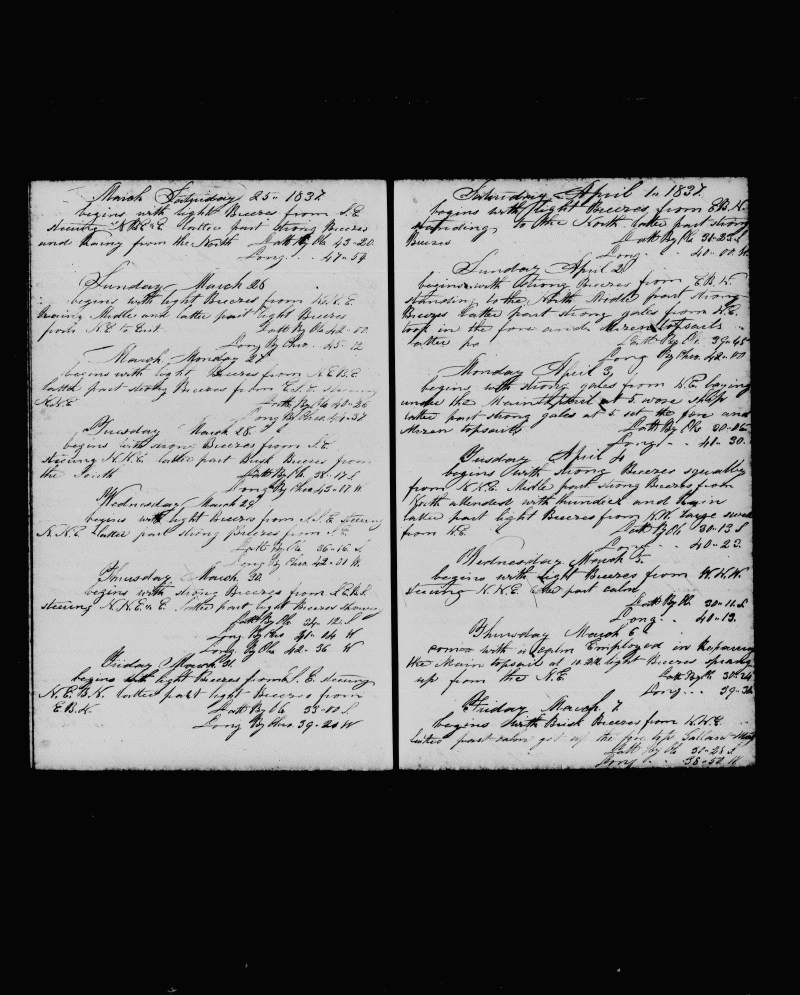 March Saturday 25" 1837
begins with light Breezes from S.E
steering N.N.E. latter part strong Breezes
and Rainy from the N.W Latt By Ob 43-20
Long - - 47-59
Sunday March 26
begins with light Breezes from
Midle and latter part light Breezes
from N.E to East Latt By Ob 42-00
Long By Chro. 45-12
March Monday 27
begins with light Breezes from N.E.B.E
latter part strong Breezes from E.S.E. steering
N.N.E Latt By Ob 40-26
Long By Chro 44-37
Tuesday March 28
begins with Breezes from S.E
steering N.N.E latter part Brisk Breezes from
the South Latt By Ob 38-17 S
Long By Chro 43-17 W
Wednesday March 29
begins with light Breezes from S.S.E steering
N.N.E latter part strong Breezes from S.E
Latt By Ob 36-16 S
Long By Chro 42-01 W
Thursday March 30
begins with strong Breezes from
steering latter part light Breezes
Latt By Ob 34-12 S
Long By Chro 41-04 W
Long By Ob 42-36 W
Friday March 31
begins with light Breezes from S.E. steering
N.E.B.N latter part light Breezes from
E.B.N. Latt By Ob 33-00 S
Long By Chro 39-20 W
Saturday April 1" 1837
begins with light Breezes from E.B.N.
standing to the North latter part strong
Breezes Latt By Ob 31-23 S
Long - - 40-00 W
Sunday April 2
begins with strong Breezes from E.B.N
standing to the North Midle part strong
Breezes latter part strong gales from N.E
took in the fore and Mizen topsails
latter Latt By Ob 30-45
Long By Chro 42-00
Monday April 3
begins with strong gales from N.E laying
under the Main at 5 wore ship
latter part strong gales at 5 set the fore and
Mizen topsails Latt By Ob 30-06
Long - - 41-30
Tusday April 4
begins with strong Breezes squally
from N.N.E. Midle part strong Breezes from
North attended with thunder and Rain
latter part light Breezes from N.W large swell
from N.E. Latt By Ob 30-13 S
Long - - 40-23
Wednesday March 5
begins with light Breezes from W.N.W.
steering N.N.E part calm
Latt By Ob 30-11 S
Long - - 40-13
Thursday March 6
comes with Calm Employed in Repairing
the Main topsail at light Breezes sprang
up from the N.E Latt By Ob 30-24
Long - - 39-36
Friday March 7
begins with Brisk Breezes from N.N.E
latter part calm got up the fore top Gallant
Latt By Ob 31-28 S
Long - - 38-52 W